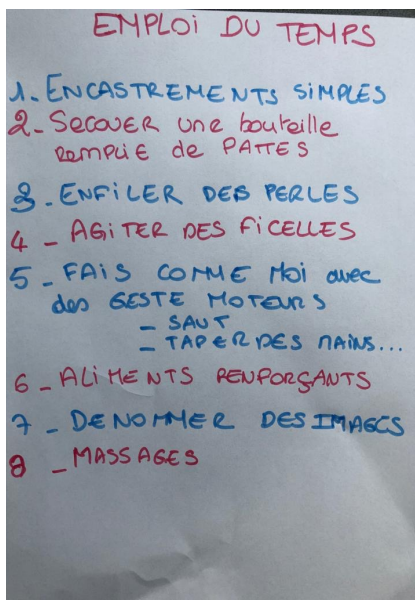 EMPLOI DU TEMPS
1. ENCASTREMENTS SIMPLES
2 - SECOUER une bouteille
REMPLIE de PATES
3. ENFILER DES PERLES
4 - AGITER DES FICELLES
5 - FAIS COMME MOI avec
des GESTE MOTEURS
- SAUT
- TAPER DES MAINS...
6 - ALIMENTS RENFORÇANTS
7 - DENOMMER DES IMAGES
8 - MASSAGES